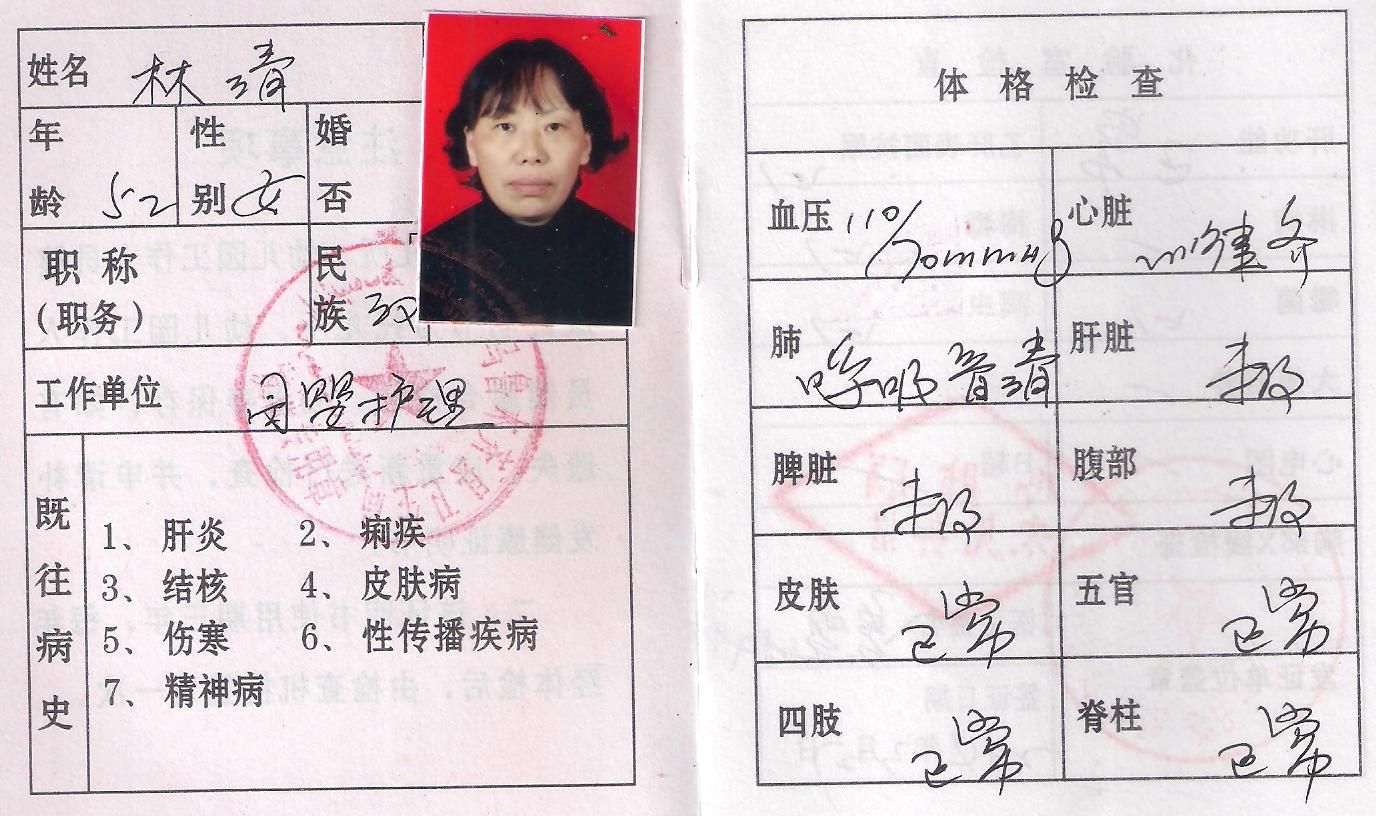 姓名 林清
年龄 52 性别 女 婚否
职称(职务) 民族 汉
工作单位 母婴护理
既往病史
1、肝炎 2、痢疾
3、结核 4、皮肤病
5、伤寒 6、性传播疾病
7、精神病
体格检查
血压 110/70mmHg 心脏
肺 呼吸音清 肝脏 未及
脾脏 未及 腹部 未及
皮肤 正常 五官 正常
四肢 正常 脊柱 正常